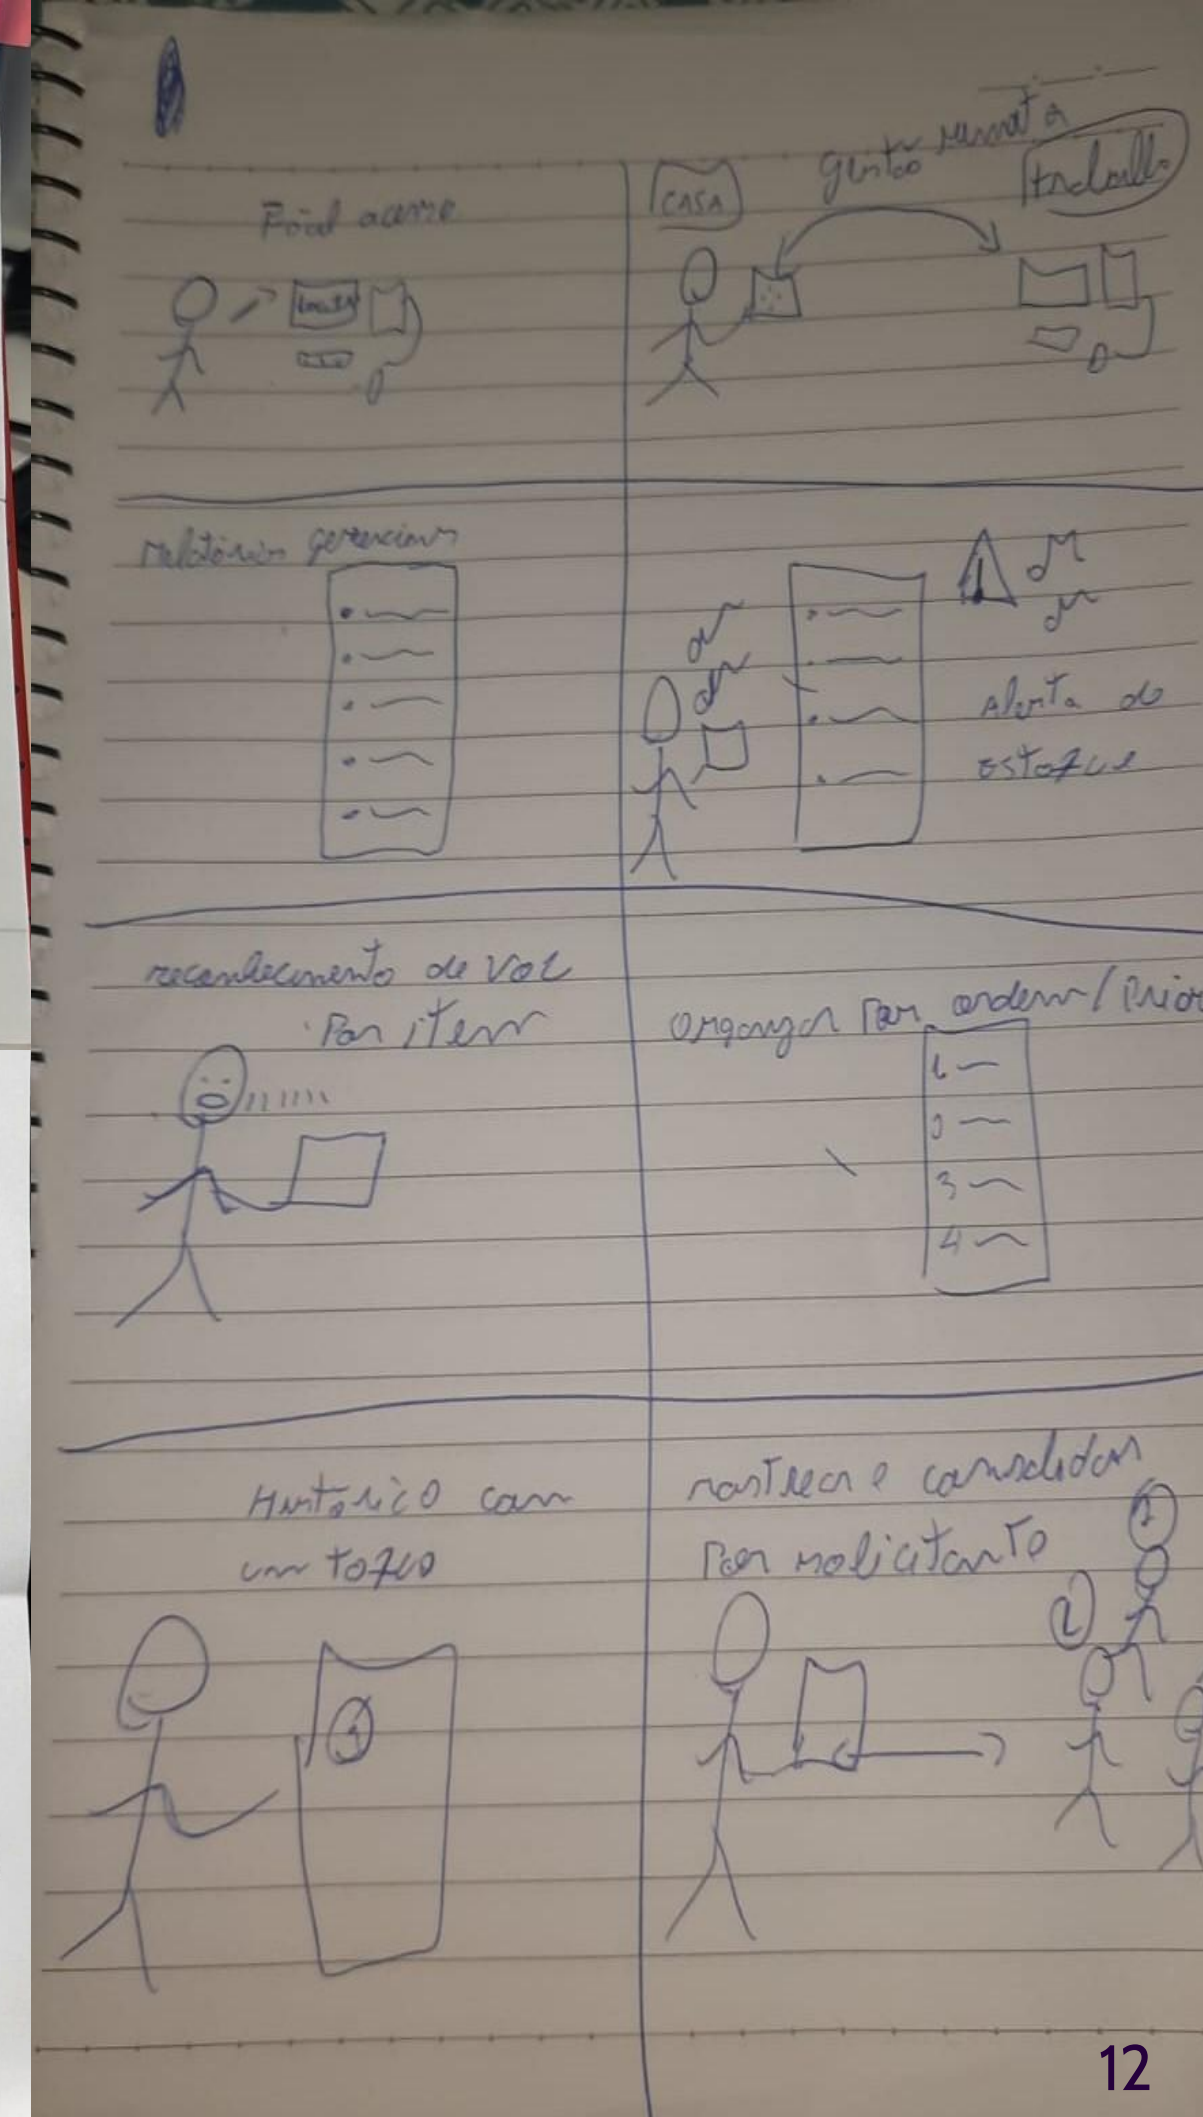 Fácil acesso
gestão remota
CASA
trabalho
relatórios gerenciais
Alerta de
estoque
reconhecimento de voz
Por item
Organizar Por ordem / Prior
3
4
Histórico com
um toque
rastrear e consolidar
Por solicitante
12